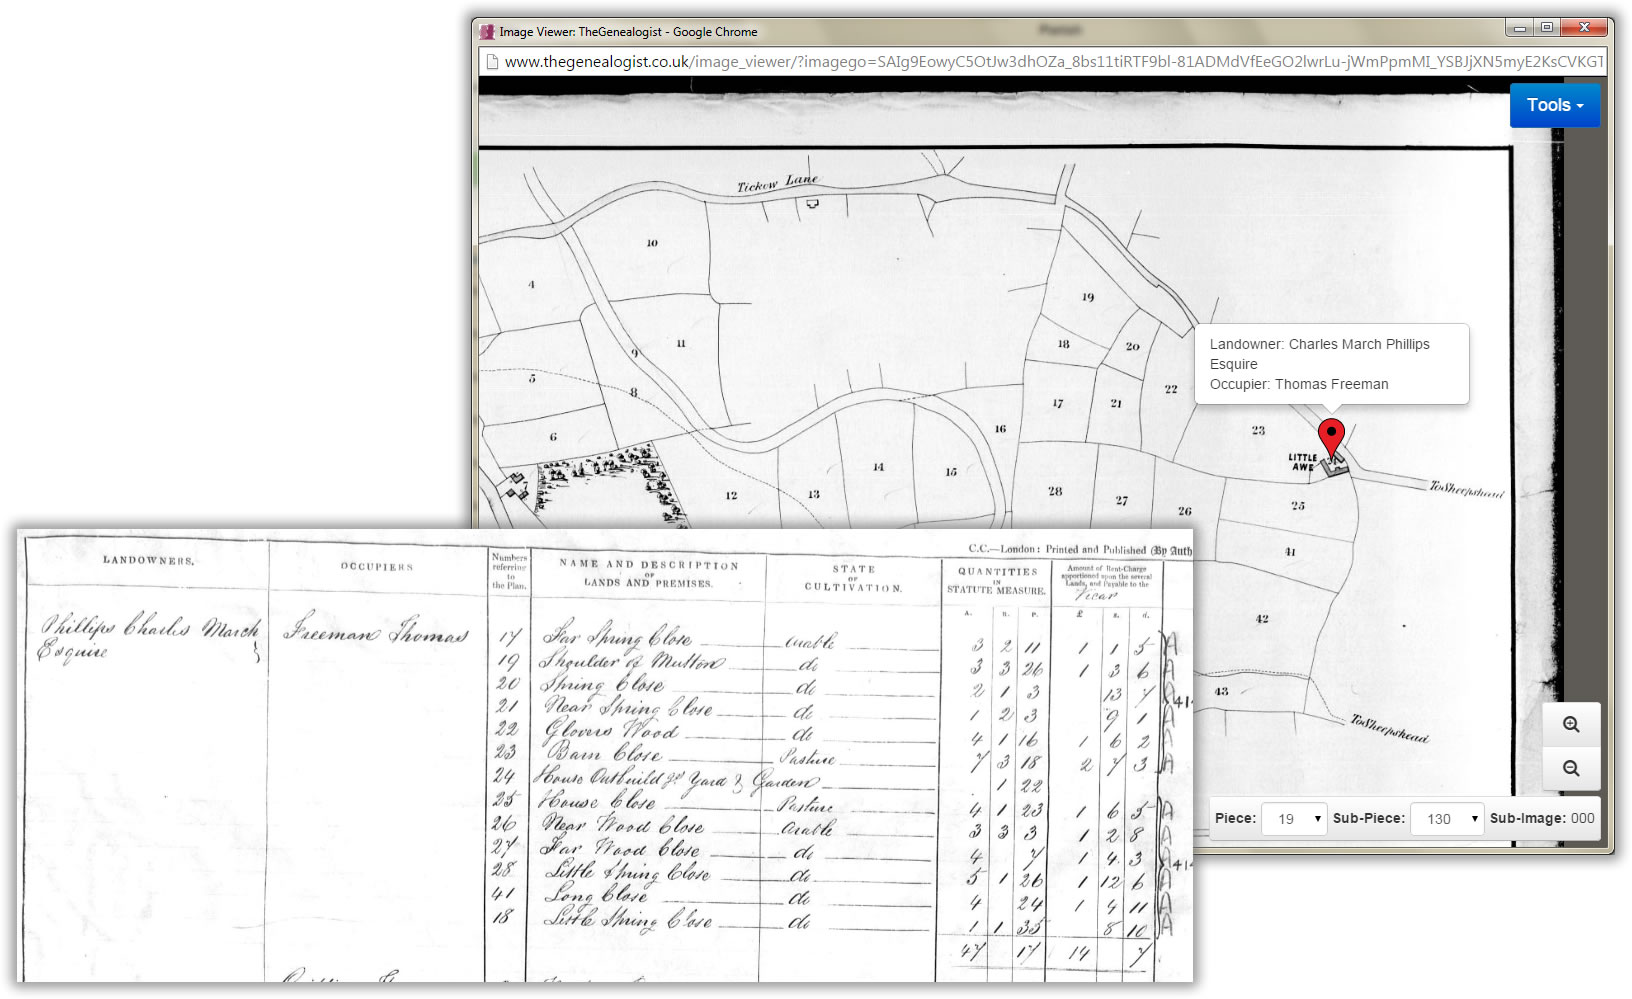 Image Viewer: TheGenealogist - Google Chrome
www.thegenealogist.co.uk/image_viewer/?imagego=SAIg9EowyC5OtJw3dhOZa_8bs11tiRTF9bl-81ADMdVfEeGO2lwrLu-jWmPpmMI_YSBJjXN5myE2KsCVKGT
Tools
Tickow Lane
10
4
19
11
9
18
20
5
8
22
17
21
16
23
6
14
15
12
13
28
27
26
25
7
41
42
43
Landowner: Charles March Phillips
Esquire
Occupier: Thomas Freeman
LITTLE
AWE
To Sheepshead
To Sheepshead
Piece: 19 Sub-Piece: 130 Sub-Image: 000
C.C.—London: Printed and Published (By Auth
LANDOWNERS.
OCCUPIERS
Numbers
referring
to
the Plan.
NAME AND DESCRIPTION
OF
LANDS AND PREMISES.
STATE
OF
CULTIVATION.
QUANTITIES
IN
STATUTE MEASURE.
Amount of Rent-Charge
apportioned upon the several
Lands, and Payable to the
Vicar
A. R. P. £ s. d.
Phillips Charles March
Esquire
Freeman Thomas
17 Far Spring Close arable 3 2 11 1 1 5 A
19 Shoulder of Mutton do 3 3 26 1 3 6 A
20 Spring Close do 2 1 3 13 7 A
21 Near Spring Close do 1 2 3 9 1 A
22 Glovers Wood do 4 1 16 1 6 2 A
23 Barn Close Pasture 7 3 18 2 7 3 A
24 House Outbuildgs Yard & Garden 1 22
25 House Close Pasture 4 1 23 1 6 5 A
26 Near Wood Close arable 3 3 3 1 2 8 A
27 Far Wood Close do 4 7 1 4 3 A
28 Little Spring Close do 5 1 26 1 12 6 A
41 Long Close do 4 24 1 4 11 A
18 Little Spring Close do 1 1 35 8 10 A
47 17 14 7